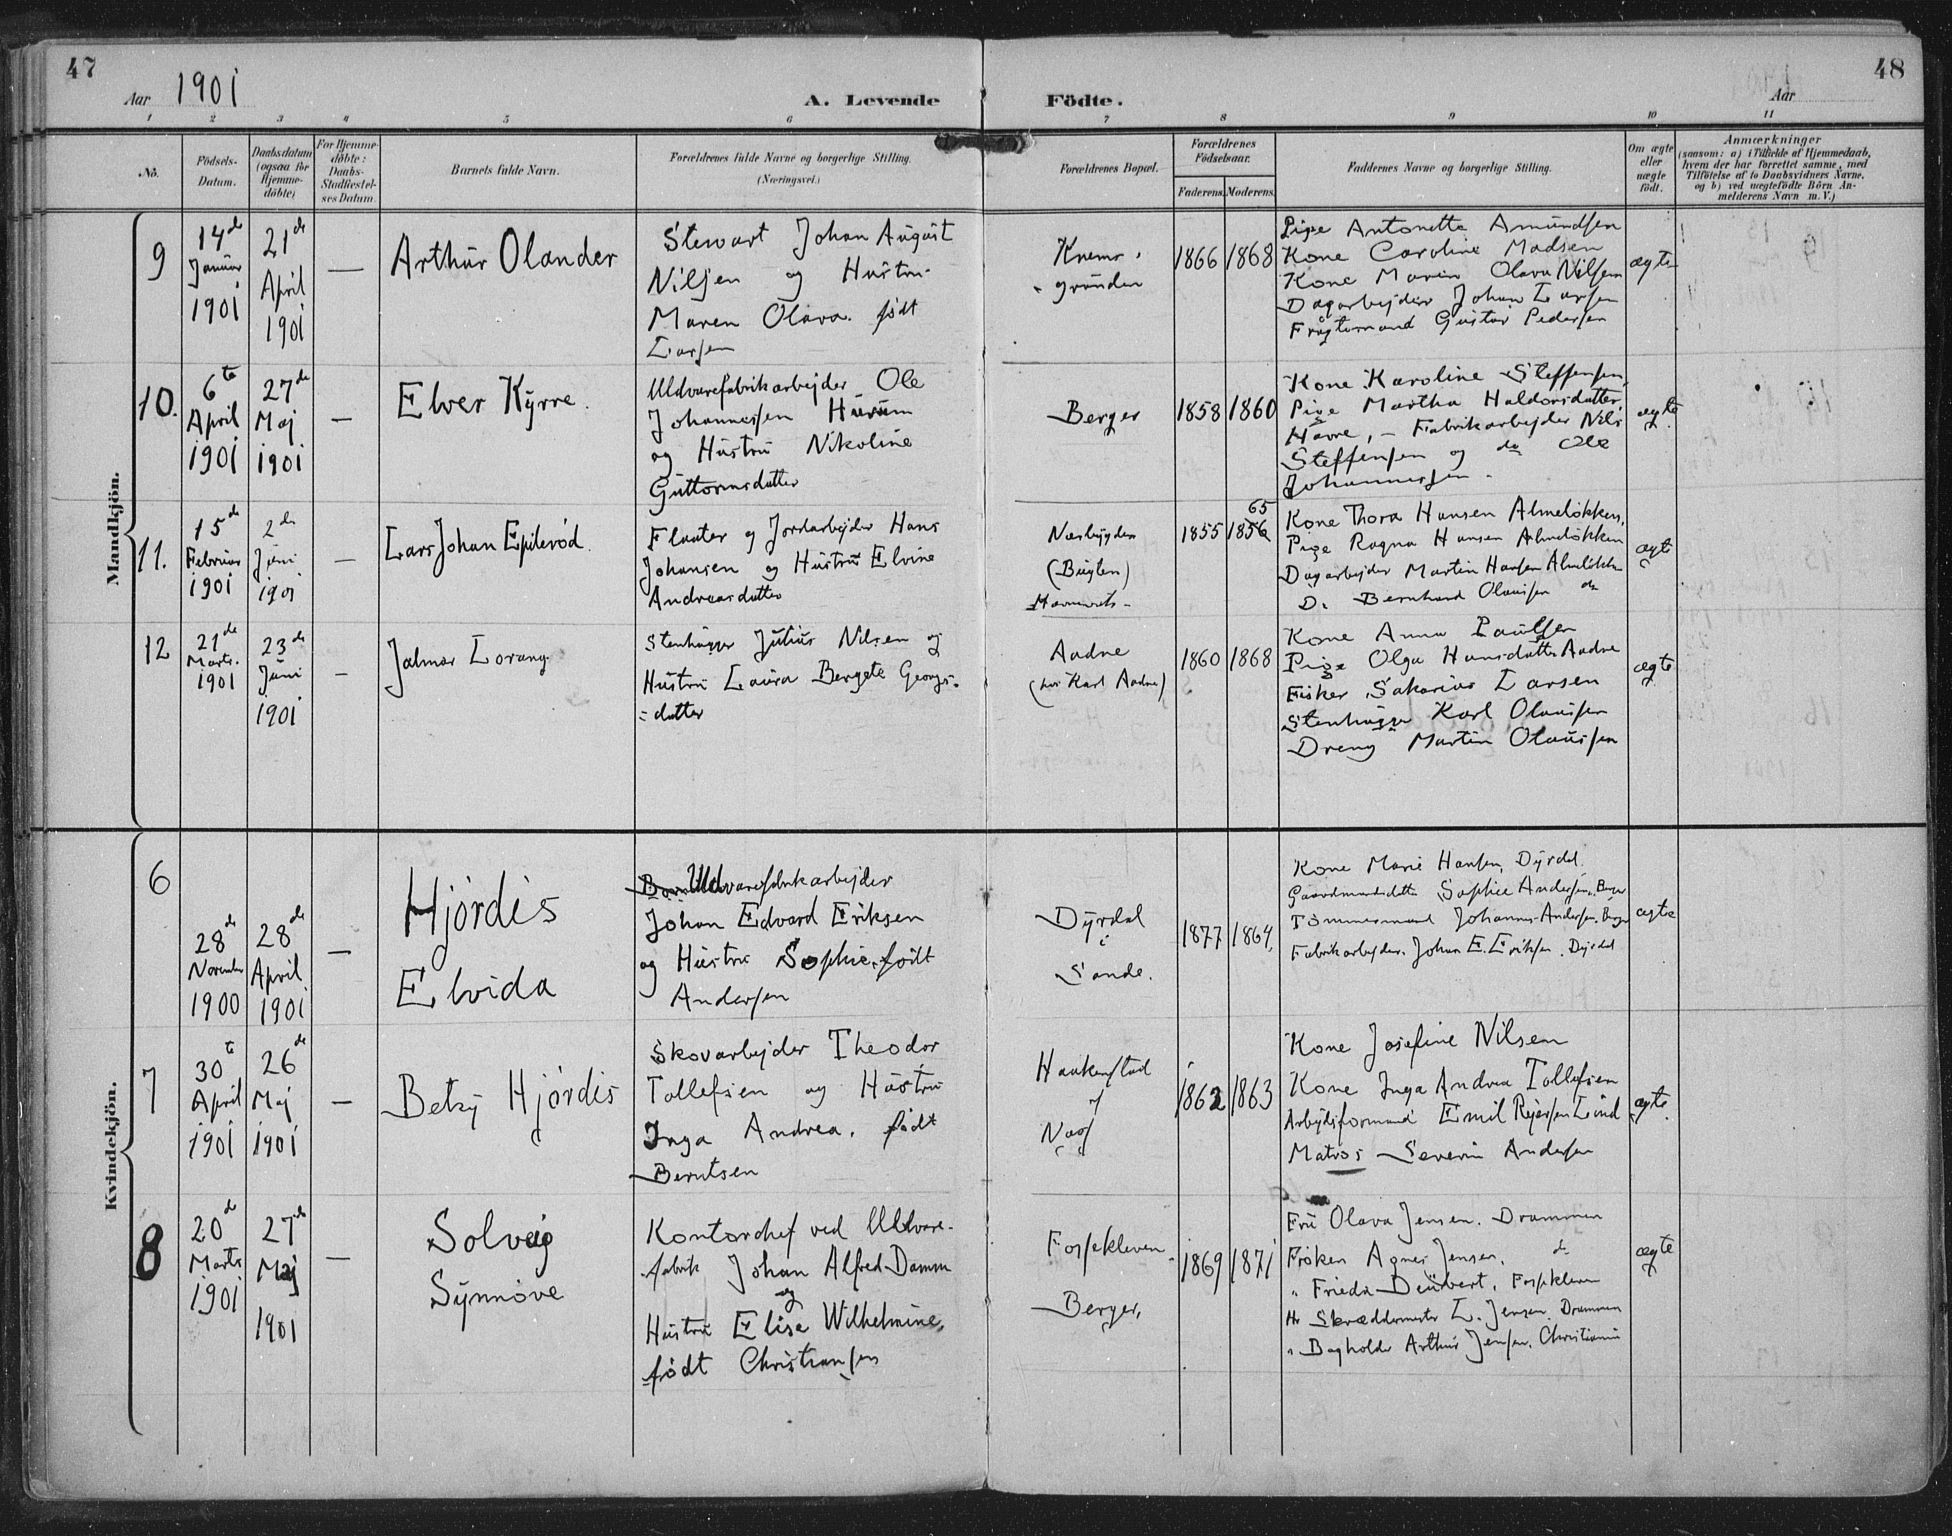 47
Aar 1901
A. Levende
Födte.
Aar
48
1 2 3 4 5 6 7 8 9 10 11
No.
Födsels-
Datum.
Daabsdatum
(ogsaa for
Hjemme-
döbte)
For Hjemme-
döbte:
Daabs-
Stadfæstel-
ses Datum.
Barnets fulde Navn.
Forældrenes fulde Navne og borgerlige Stilling.
(Næringsvei.)
Forældrenes Bopæl.
Forældrenes
Födselsaar.
Faderens.
Moderens.
Faddernes Navne og borgerlige Stilling.
Om ægte
eller
uægte
födt.
Anmærkninger
(saasom: a) i Tilfælde af Hjemmedaab,
hvem der har forrettet samme, med
Tilföielse af to Daabsvidners Navne,
og b) ved uægtefödte Börn An-
melderens Navn m. V.)
Mandkjön.
9
14de
Januar
1901
21de
April
1901
—
Arthur Olander
Stewart Johan August
Nilsen og Hustru
Maren Olava. født
Larsen
grunden
1866
1868
Pige Antonette Amundsen
Kone Caroline Madsen
Kone Maren Olava Nilsen
Dagarbejder Johan Larsen
Gustav Pedersen
ægte
10.
6te
April
1901
27de
Maj
1901
—
Elver Kyrre.
Uldvarefabrikarbejder Ole
Johannessen Hurum
og Hustru Nikoline
Guttormsdatter
Berger
1858
1860
Kone Karoline Steffensen,
Pige Martha Haldorsdatter
Havre, – Fabrikarbejder Nils
Steffensen og do Ole
Johannessen.
ægte
11.
15de
Februar
1901
2de
Juni
1901
—
Lars Johan Epilevød.
Fløater og Jordarbejder Hans
Johansen og Hustru Elvine
Andreasdatter
Næsbygden
(Bugten)
1855
65
1856
Kone Thora Hansen Almeløkken,
Pige Ragna Hansen Almeløkken
Dagarbejder Martin Hansen Almeløkk
D. Bernhard Olausen do
ægte
12
21de
Marts.
1901
23de
Juni
1901
–
Jalmar Lorang
Stenhugger Julius Nilsen og
Hustru Laura Bergete Georgs-
=datter
Aadne
(hos Karl Aadne)
1860
1868
Kone Anna Paulsen
Pige Olga Hansdatter Aadne
Fisker Sakarias Larsen
Stenhugger Karl Olausen
Dreng Martin Olausen
ægte
Kvindekjön.
6
28de
November
1900
28de
April
1901
—
Hjørdis
Elvida
Uldvarefabrikarbejder
Johan Edvard Eriksen
og Hustru Sophie født
Andersen
Dyrdal
i
Sande.
1877
1864,
Kone Marie Hansen, Dyrdal.
Gaardmandsdatter Sophie Andersen, Berger
Tømmermand Johannes Andersen. Berger
Fabrikarbejder. Johan E. Eriksen. Dyrdal
ægte
7
30te
April
1901
26de
Maj
1901
—
Betzy Hjørdis
Skovarbejder Theodor
Tollefsen og Hustru
Inga Andrea. født
Berntsen
Haakenstad
Næs
1862
1863
Kone Josefine Nilsen
Kone Inga Andrea Tollefsen
Arbejdsformand Emil Reiersen Lind
Matros Severin Andersen
ægte.
8
20de
Marts
1901
27de
Maj
1901
—
Solveig
Synnøve
Kontorchef ved Uldvare-
fabrik Johan Alfred Damm
og
Hustru Elise Wilhelmine,
født Christiansen
Fossekleven
Berger,
1869
1871
Fru Olava Jensen. Drammen
Frøken Agnes Jensen, do
" Frieda Deubert, Fossekleven
Hr Skræddermester L. Jensen. Drammen
" Bogholder Arthur Jensen. Christiania
ægte